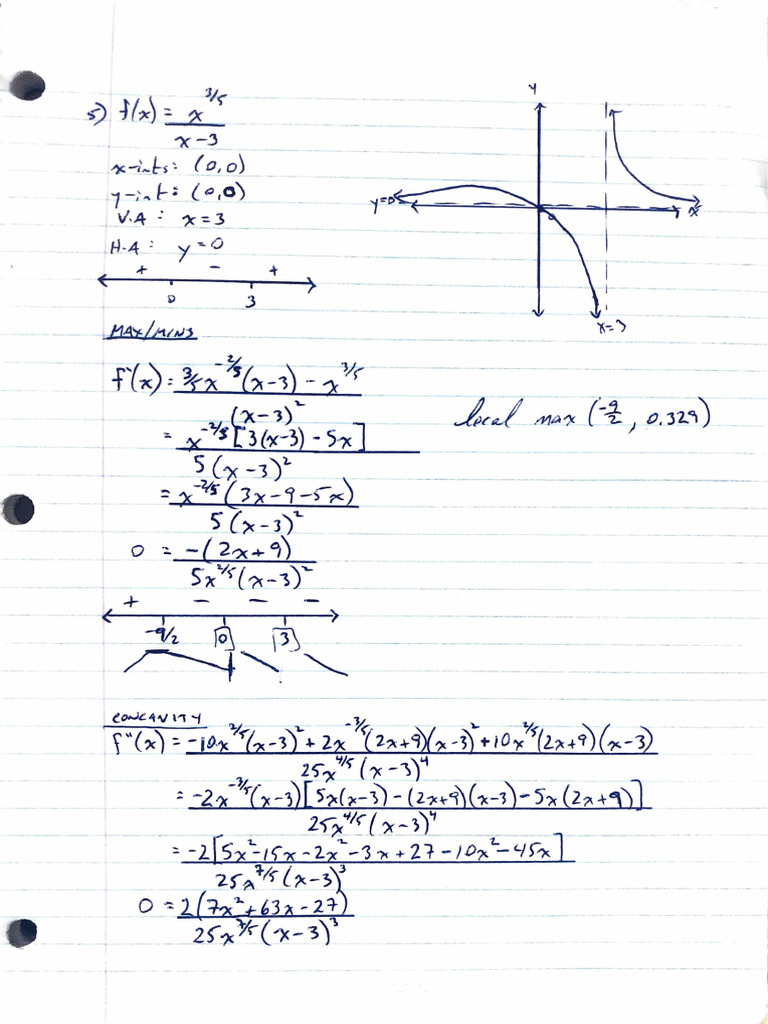 5) f(x) = x^(3/5) / (x-3)
x-ints: (0,0)
y-int: (0,0)
V.A: x=3
H.A: y=0
+ - +
0 3
y
y=0
0
x
x=3
MAX/MINS
f'(x) = (3/5 x^(-2/5) (x-3) - x^(3/5)) / (x-3)^2
= x^(-2/5) [3(x-3) - 5x] / 5(x-3)^2
local max (-9/2, 0.329)
= x^(-2/5) (3x-9-5x) / 5(x-3)^2
0 = -(2x+9) / 5x^(2/5) (x-3)^2
+ - - -
-9/2 0 3
CONCAVITY
f"(x) = (-10x^(2/5) (x-3)^2 + 2x^(-3/5) (2x+9)(x-3)^2 + 10x^(2/5) (2x+9)(x-3)) / 25x^(4/5) (x-3)^4
= -2x^(-3/5) (x-3)[5x(x-3) - (2x+9)(x-3) - 5x(2x+9)] / 25x^(4/5) (x-3)^4
= -2[5x^2-15x-2x^2-3x+27-10x^2-45x] / 25x^(7/5) (x-3)^3
0 = 2(7x^2+63x-27) / 25x^(7/5) (x-3)^3